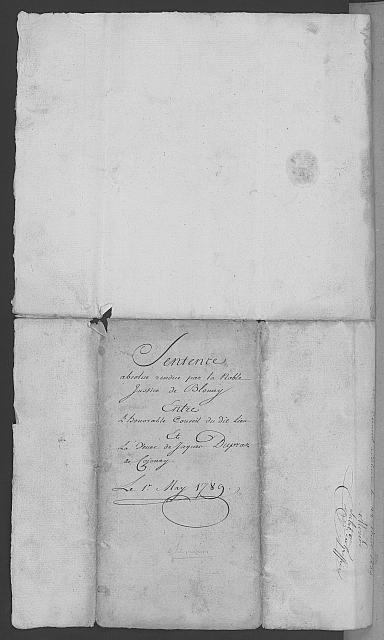 Sentence
absolue rendue par la Noble
Justice de Blonay
Entre
L'Honorable Conseil du dit Lieu
Et
La Veuve de Jaques Dupraz
de Cojonay
Le 1r May 1789.